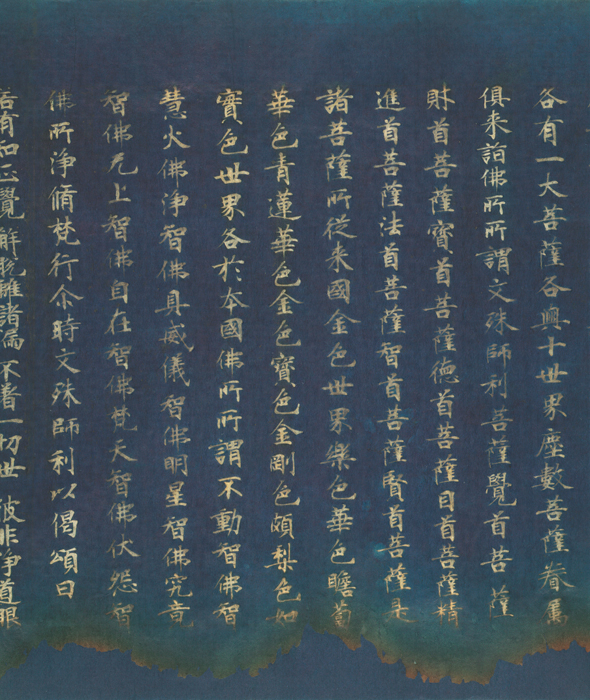 各有一大菩薩各與十世界塵數菩薩眷屬
俱来詣佛所所謂文殊師利菩薩覺首菩薩
財首菩薩寶首菩薩德首菩薩目首菩薩精
進首菩薩法首菩薩智首菩薩賢首菩薩是
諸菩薩所從来國金色世界樂色華色瞻蔔
華色青蓮華色金色寶色金剛色頗梨色如
實色世界各於本國佛所所謂不動智佛智
慧火佛淨智佛具威儀智佛明星智佛究竟
智佛无上智佛自在智佛梵天智佛伏怨智
佛所淨脩梵行尒時文殊師利以偈頌曰
若有知正覺解脫離諸漏不著一切世彼非淨道眼